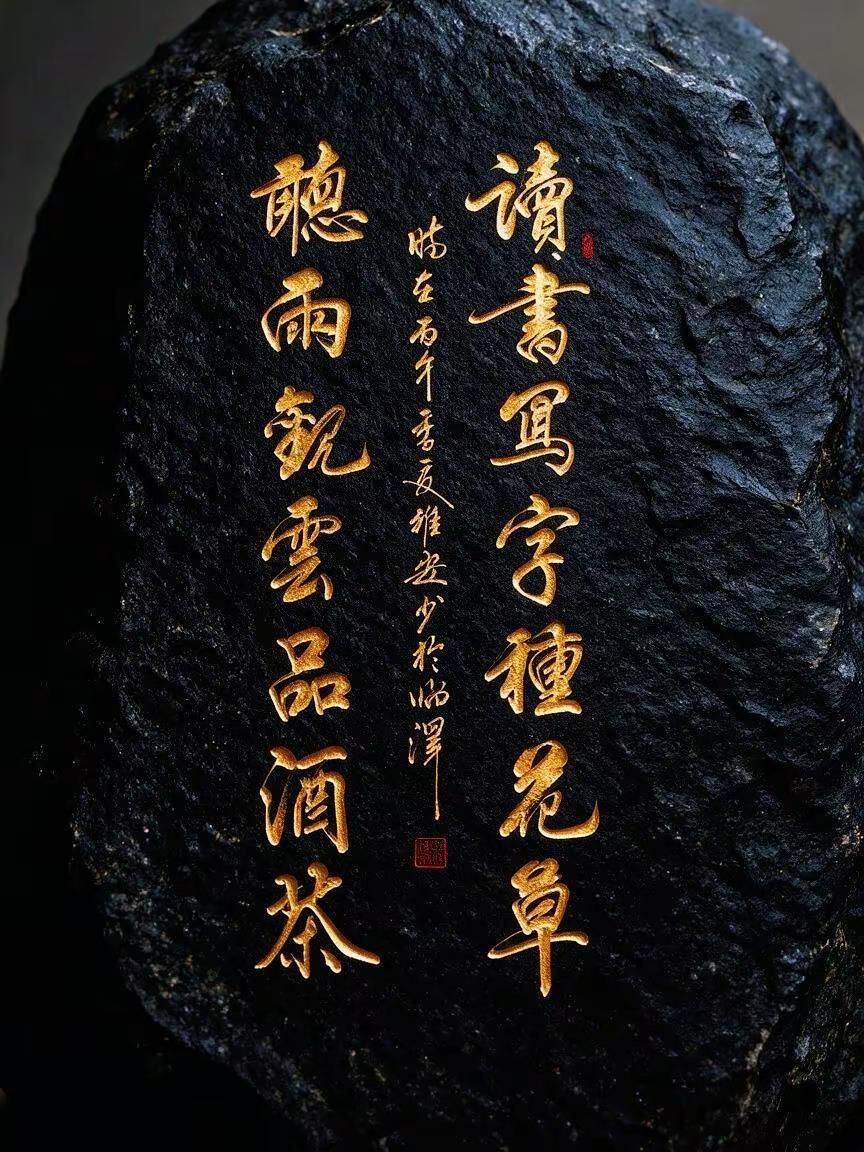 讀書寫字種花草
聽雨觀雲品酒茶
時在丙午季夏雅安少於臨澤